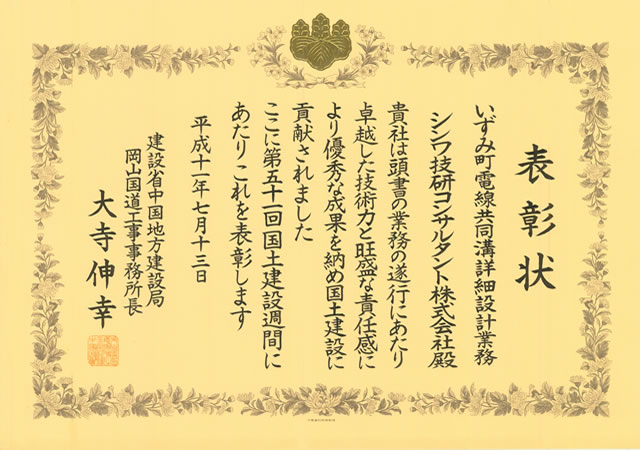 表彰状
いずみ町電線共同溝詳細設計業務
シンワ技研コンサルタント株式会社殿
貴社は頭書の業務の遂行にあたり
卓越した技術力と旺盛な責任感に
より優秀な成果を納め国土建設に
貢献されました
ここに第五十一回国土建設週間に
あたりこれを表彰します
平成十一年七月十三日
建設省中国地方建設局
岡山国道工事事務所長
大寺伸幸